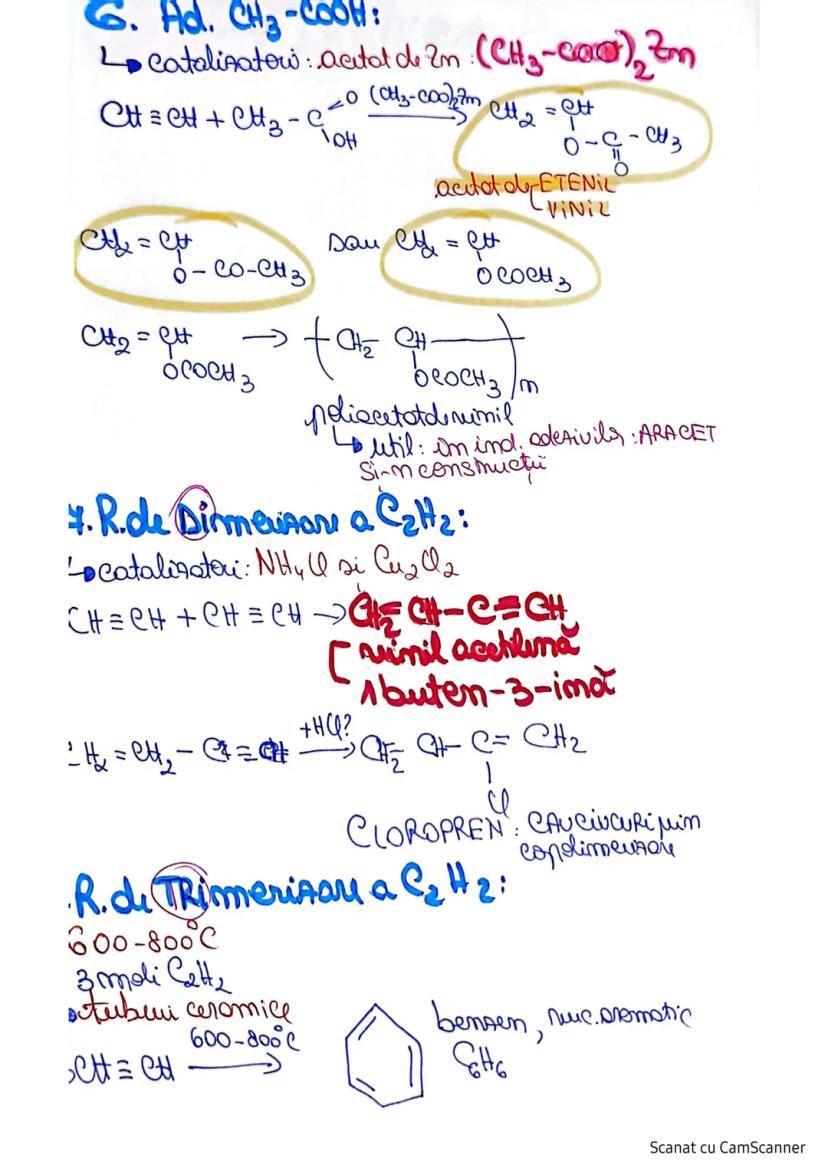 6. Ad. CH3-COOH:
↳ catalizatori: acetat de Zn: (CH3-COO)2Zn
CH ≡ CH + CH3 - C =O \OH (CH3-COO)2Zn → CH2 = CH
O - C - CH3
O
acetat de ETENIL
VINIL
CH2 = CH sau CH2 = CH
O - CO - CH3 OCOCH3
CH2 = CH → ( CH2 CH )n
OCOCH3 OCOCH3
poliacetat de vinil
↳ util: în ind. adezivilor: ARACET
și-n construcții
7. R. de Dimerizare a C2H2:
↳ catalizatori: NH4Cl și Cu2Cl2
CH ≡ CH + CH ≡ CH → CH2 = CH - C ≡ CH
vinil acetilenă
1 buten-3-ină
H2 = CH2 - C ≡ CH +HCl? → CH2 = CH - C = CH2
Cl
CLOROPREN: CAUCIUCURI prin
copolimerizare
R. de TRimerizare a C2H2:
600-800°C
3 moli C2H2
tuburi ceramice
600-800°C
CH ≡ CH →
benzen, nuc. aromatic
C6H6
Scanat cu CamScanner